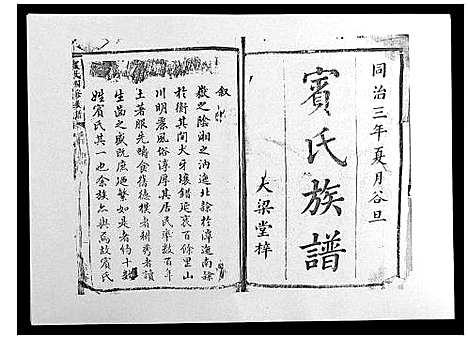 同治三年夏月谷旦
賓氏族譜
大梁堂梓
叙
嶽之陰湘之汭迤北隸於潭迤南隸
於衡其間犬牙壤錯延袤百餘里山
川明麗風俗淳厚其居民率數百年
土著服先疇食舊德樸者耕秀者讀
生齒之盛既庶
繁如是者僅十數
姓賓氏其一也余族
與
為故賓氏